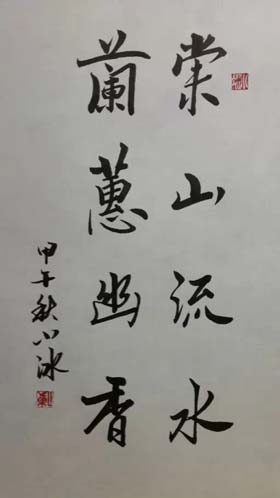 棠山流水
蘭蕙幽香
甲午秋心冰